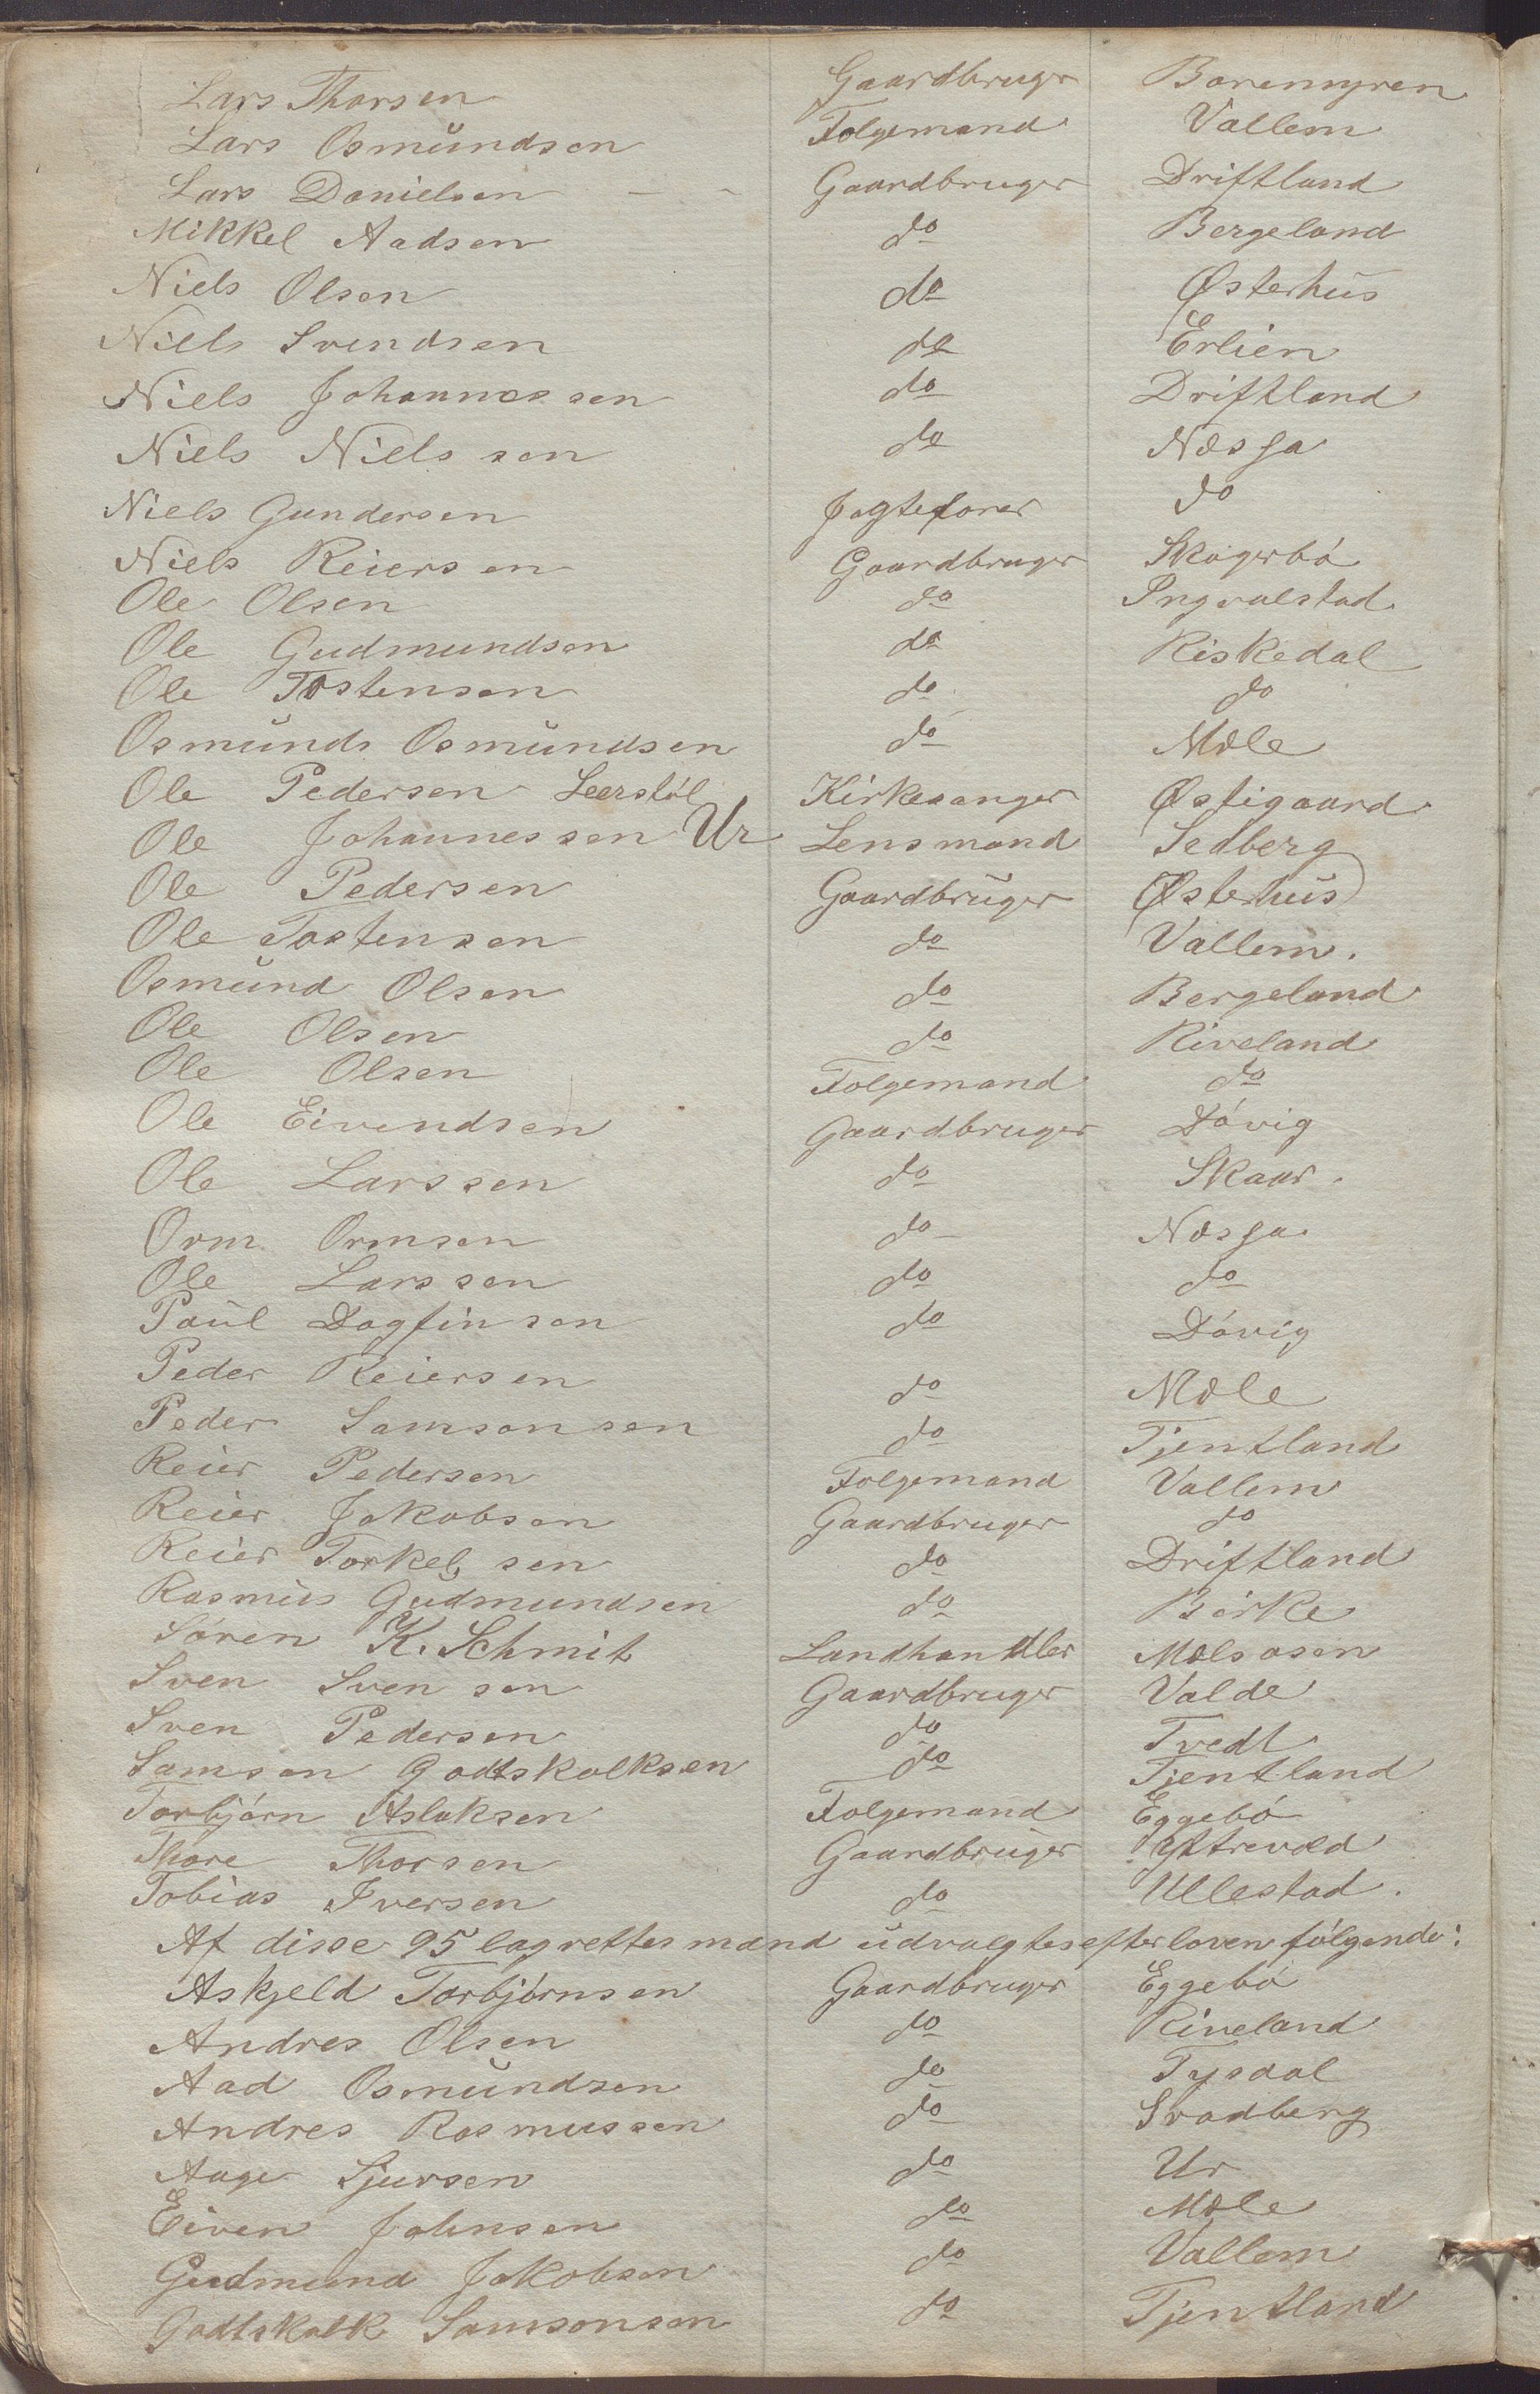 Lars Thorsen Gaardbrugr Boremyren
Lars Osmundsen Folgemand Vallem
Lars Danielsen - - Gaardbruger Driftland
Mikkel Aadsen do Bergeland
Niels Olsen do Østerhus
Niels Svendsen do Erlien
Niels Johannessen do Driftland
Niels Nielssen do Næssa
Niels Gundersen Jagtefører do
Niels Reiersen Gaardbruger Skogerbó
Ole Olsen do Ingvalstad
Ole Gudmundsen do Riskedal
Ole Tostensen do do
Osmund Osmundsen do Mæle
Ole Pedersen Leerstøl Kirkesanger Østigaard
Ole Johannessen Ur Lensmand Sedberg
Ole Pedersen Gaardbruger Østerhus
Ole Tostensen do Vallem.
Osmund Olsen do Bergeland
Ole Olsen do Riveland
Ole Olsen Folgemand do
Ole Eivendsen Gaardbruger Dóvig
Ole Larssen do Skaar.
Orm Ormsen do Næssa
Ole Larssen do do
Paul Dagfinsen do Dóvig
Peder Reiersen do Mæle
Peder Samsonsen do Tjentland
Reier Pedersen Folgemand Vallem
Reier Jakobsen Gaardbruger do
Reier Torkelsen do Driftland
Rasmus Gudmundsen do Børke
Sóren K. Schmit Landhandler Mælsosen
Sven Svensen Gaardbruger Valde
Sven Pedersen do Tvedt
Samson Godtskalksen do Tjentland
Torbjórn Aslaksen Folgemand Eggebó
Thore Thorsen Gaardbruger Yttrevold
Tobias Iversen do Ullestad.
Af disse 95 lagrettesmænd udvalgtes efter loven fólgende:
Askjeld Torbjórnsen Gaardbruger Eggebó
Andres Olsen do Riveland
Aad Osmundsen do Tysdal
Andres Rasmussen do Svadberg
Aage Sjursen do Ur
Eiven Johnsen do Mæle
Gudmund Jakobsen do Vallem
Godtskalk Samsonsen do Tjentland